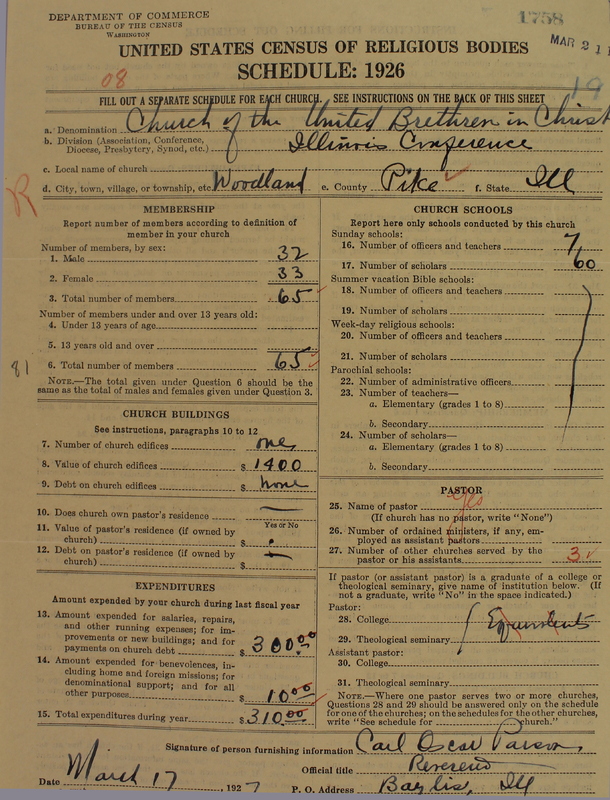 DEPARTMENT OF COMMERCE
BUREAU OF THE CENSUS
WASHINGTON
1758
MAR 21 1
UNITED STATES CENSUS OF RELIGIOUS BODIES
SCHEDULE: 1926
08
19
FILL OUT A SEPARATE SCHEDULE FOR EACH CHURCH. SEE INSTRUCTIONS ON THE BACK OF THIS SHEET
a. Denomination Church of the United Brethren in Christ
b. Division (Association, Conference, Diocese, Presbytery, Synod, etc.) Illinois Conference
c. Local name of church
d. City, town, village, or township, etc. Woodland e. County Pike f. State Ill
R
MEMBERSHIP
Report number of members according to definition of
member in your church
Number of members, by sex:
1. Male 32
2. Female 33
3. Total number of members 65
Number of members under and over 13 years old:
4. Under 13 years of age
5. 13 years old and over
6. Total number of members 65
81
NOTE.—The total given under Question 6 should be the
same as the total of males and females given under Question 3.
CHURCH BUILDINGS
See instructions, paragraphs 10 to 12
7. Number of church edifices one
8. Value of church edifices $ 1400
9. Debt on church edifices $ none
10. Does church own pastor's residence —
Yes or No
11. Value of pastor's residence (if owned by
church) $
12. Debt on pastor's residence (if owned by
church) $ —
EXPENDITURES
Amount expended by your church during last fiscal year
13. Amount expended for salaries, repairs,
and other running expenses; for im-
provements or new buildings; and for
payments on church debt $ 300.00
14. Amount expended for benevolences, in-
cluding home and foreign missions; for
denominational support; and for all
other purposes 10.00
15. Total expenditures during year $ 310.00
CHURCH SCHOOLS
Report here only schools conducted by this church
Sunday schools:
16. Number of officers and teachers 7
17. Number of scholars 60
Summer vacation Bible schools:
18. Number of officers and teachers
19. Number of scholars
Week-day religious schools:
20. Number of officers and teachers
21. Number of scholars
Parochial schools:
22. Number of administrative officers
23. Number of teachers—
a. Elementary (grades 1 to 8)
b. Secondary
24. Number of scholars—
a. Elementary (grades 1 to 8)
b. Secondary
PASTOR
25. Name of pastor yes
(If church has no pastor, write "None")
26. Number of ordained ministers, if any, em-
ployed as assistant pastors
27. Number of other churches served by the
pastor or his assistants 3
If pastor (or assistant pastor) is a graduate of a college or
theological seminary, give name of institution below. (If
not a graduate, write "No" in the space indicated.)
Pastor:
28. College
29. Theological seminary
Assistant pastor:
30. College
31. Theological seminary
NOTE.—Where one pastor serves two or more churches,
Questions 28 and 29 should be answered only on the schedule
for one of the churches; on the schedules for the other churches,
write "See schedule for church."
Signature of person furnishing information Carl Oscar Parson
Official title Reverend
Date March 17, 1927 P. O. Address Baylis, Ill